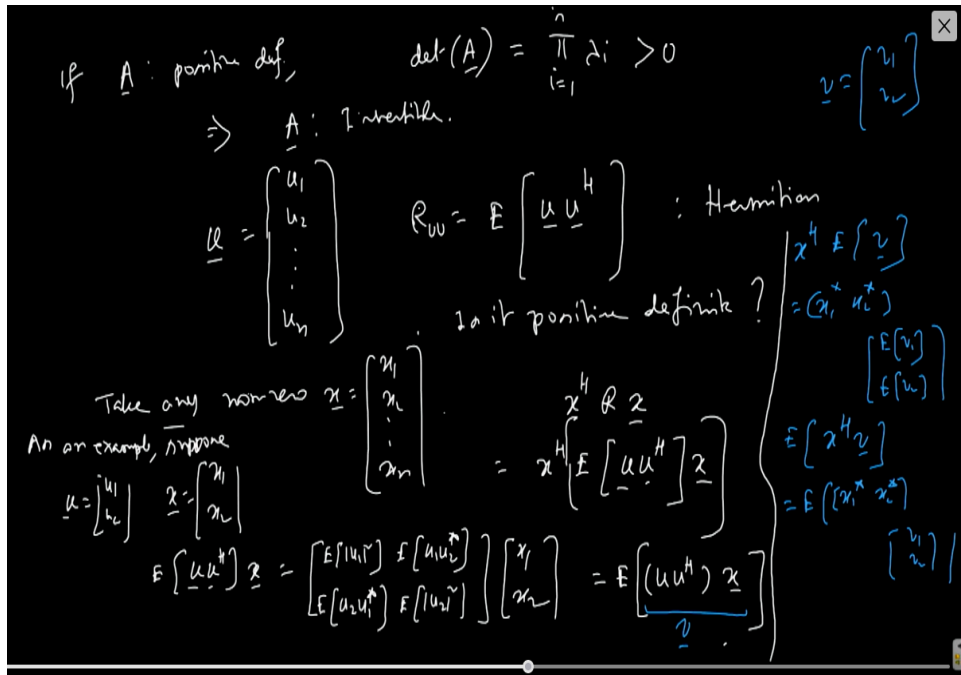 If A : positive def, det(A) = n π i=1 λi > 0
⇒ A : Invertible.
v = [v1 v2]
u = [u1 u2 ⋮ un] Ruu = E [u u^H] : Hermitian
Is it positive definite ?
Take any nonzero x = [x1 x2 ⋮ xn]
x^H R x
= x^H [E [u u^H] x]
As an example, suppose
u = [u1 u2] x = [x1 x2]
E [u u^H] x = [E[|u1|²] E[u1u2*] E[u2u1*] E[|u2|²]] [x1 x2] = E [(uu^H) x]
v
x^H E [v]
= (x1* x2*)
[E[v1] E[v2]]
E [x^H v]
= E ([x1* x2*]
[v1 v2])